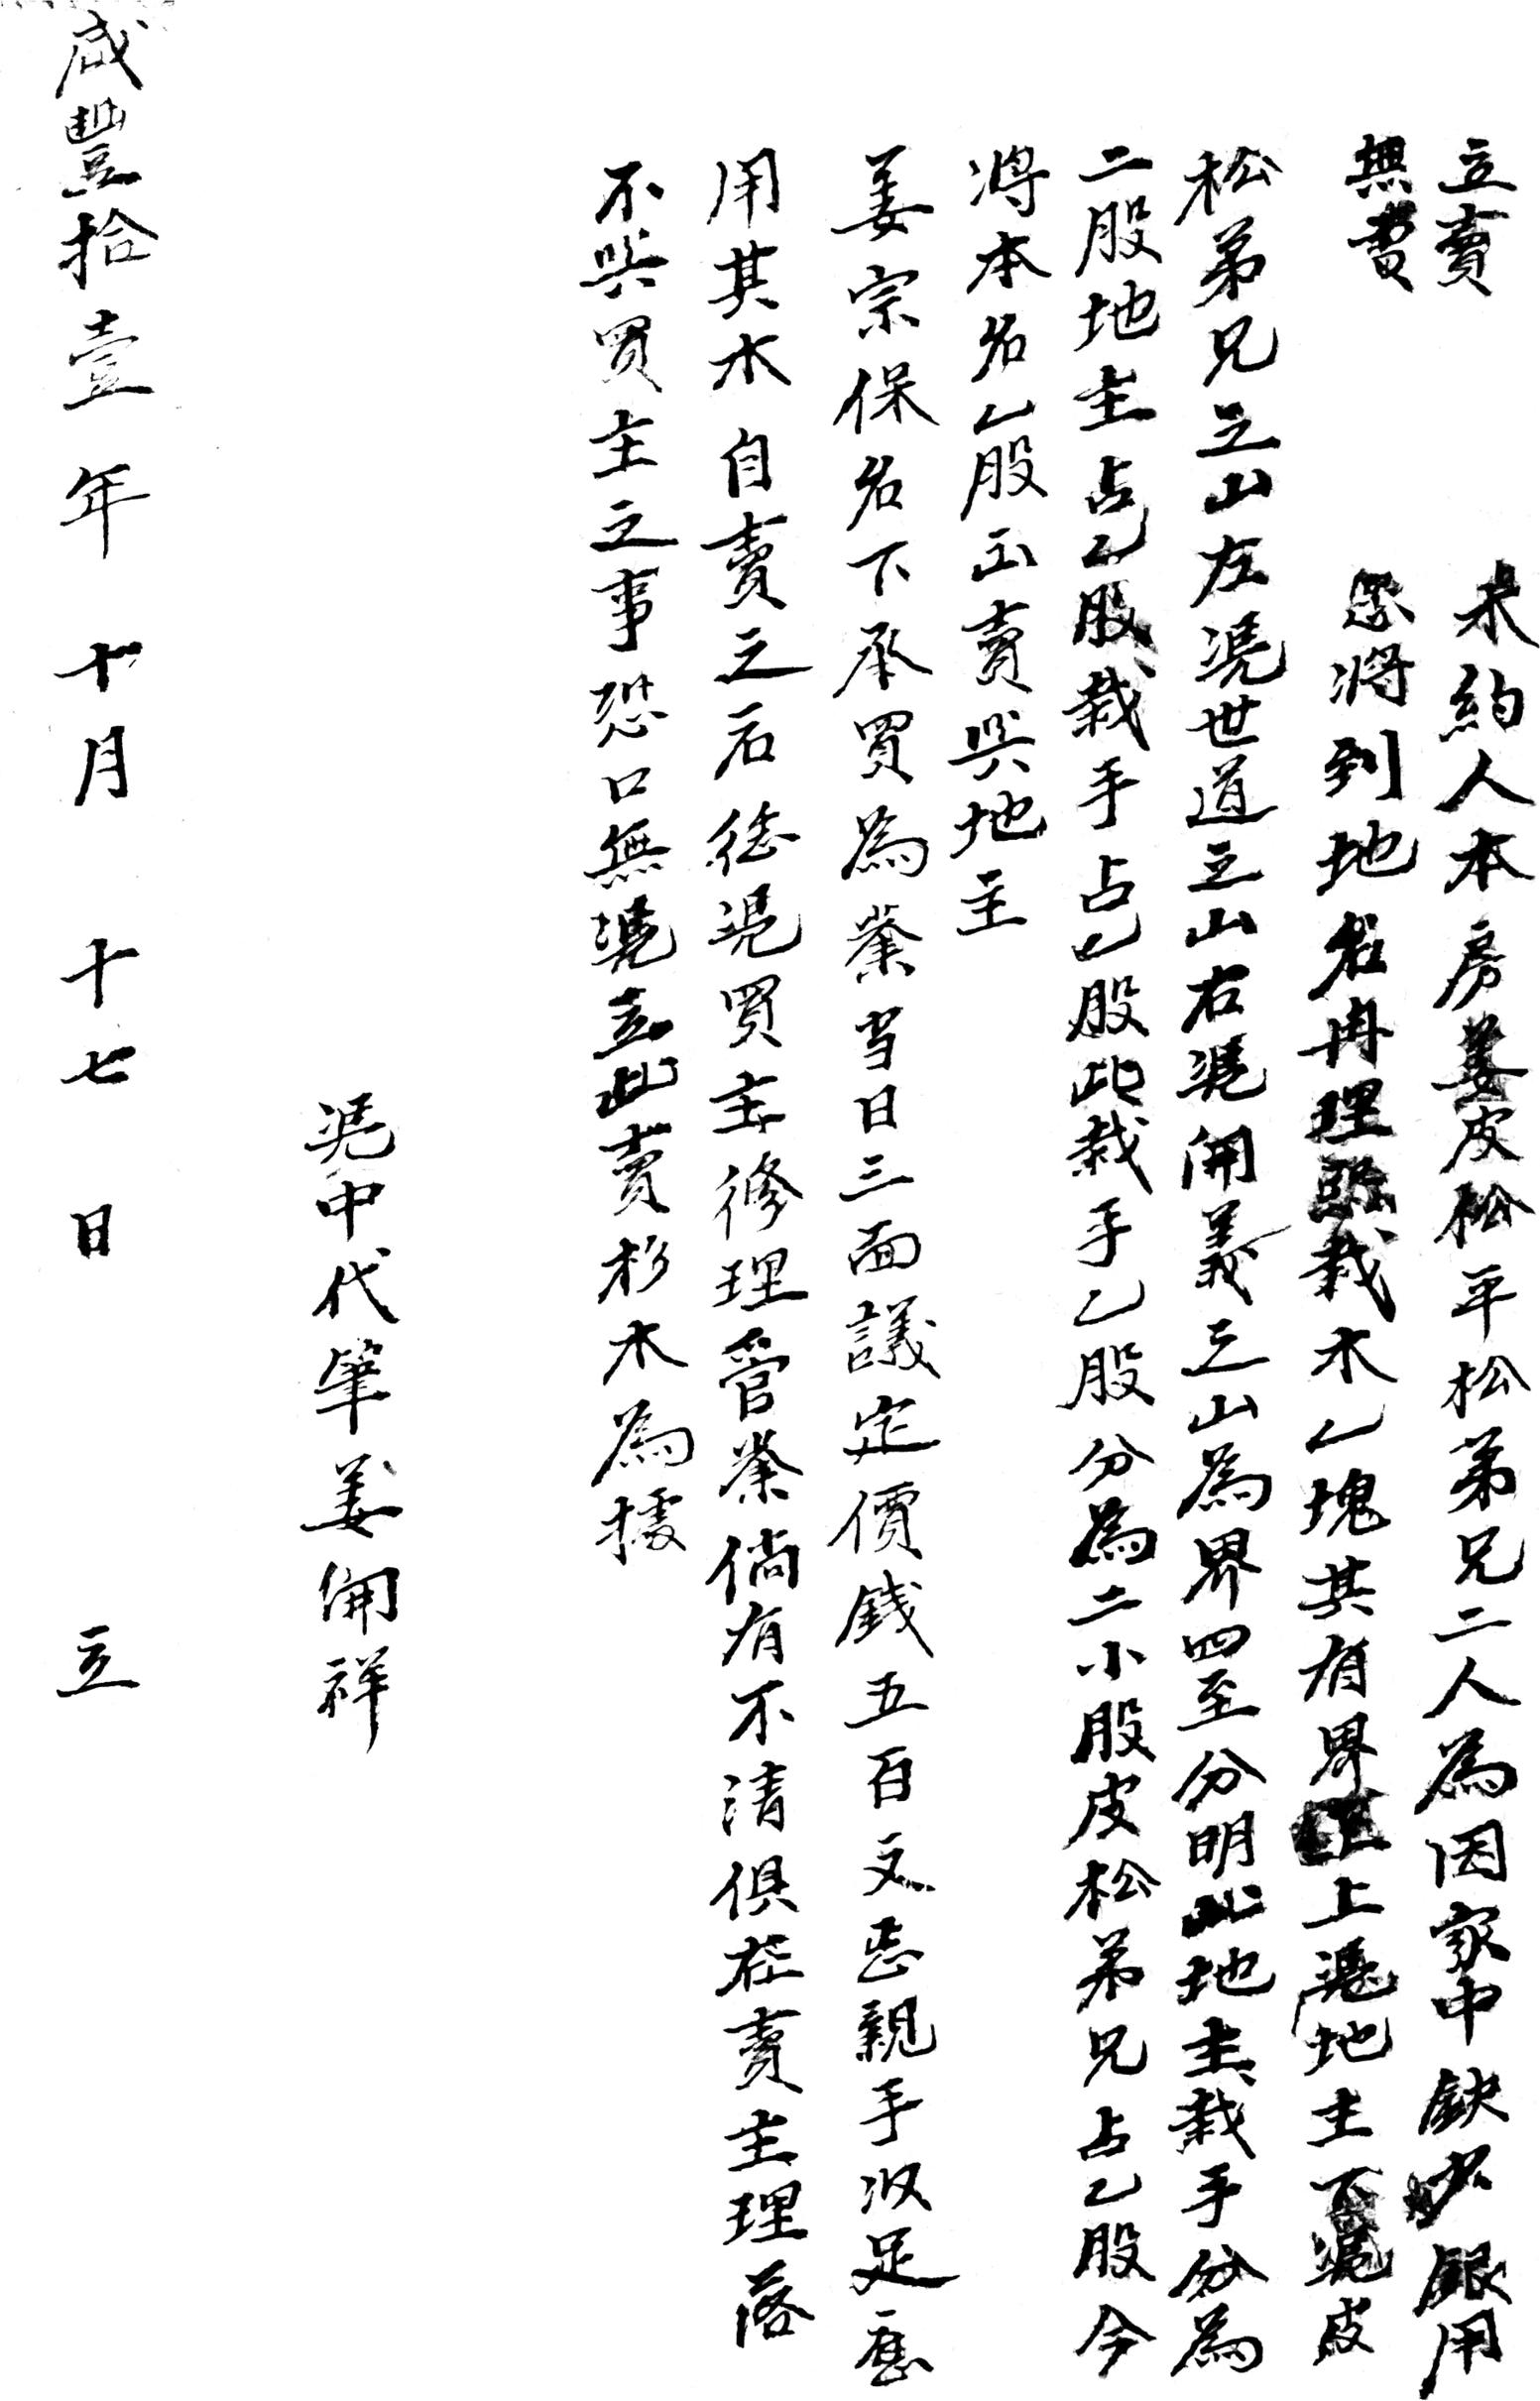 立賣　　木約人本房姜皮松平松弟兄二人為因家中缺少銀用
無費　　愿將到地名冉理栽木乙塊其有界上憑地主下憑皮
松弟兄之山左凴世道之山右凴開義之山為界四至分明此地主栽手分為
二股地主占乙股栽手占乙股此栽手乙股分為二小股皮松弟兄占乙股今
將本名乙股出賣與地主
姜宗保名下承買為業当日三面議定價錢五百文悉親手收足應
用其木自賣之后徔凴買主修理管業倘有不清俱在賣主理落
不與買主之事恐口無凴立此賣杉木為據
凴中代筆姜開祥
咸豐拾壹年十月十七日立